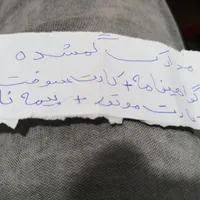 مدارک گمشده
گواهینامه + کارت سوخت
کارت موتور + بیمه نا